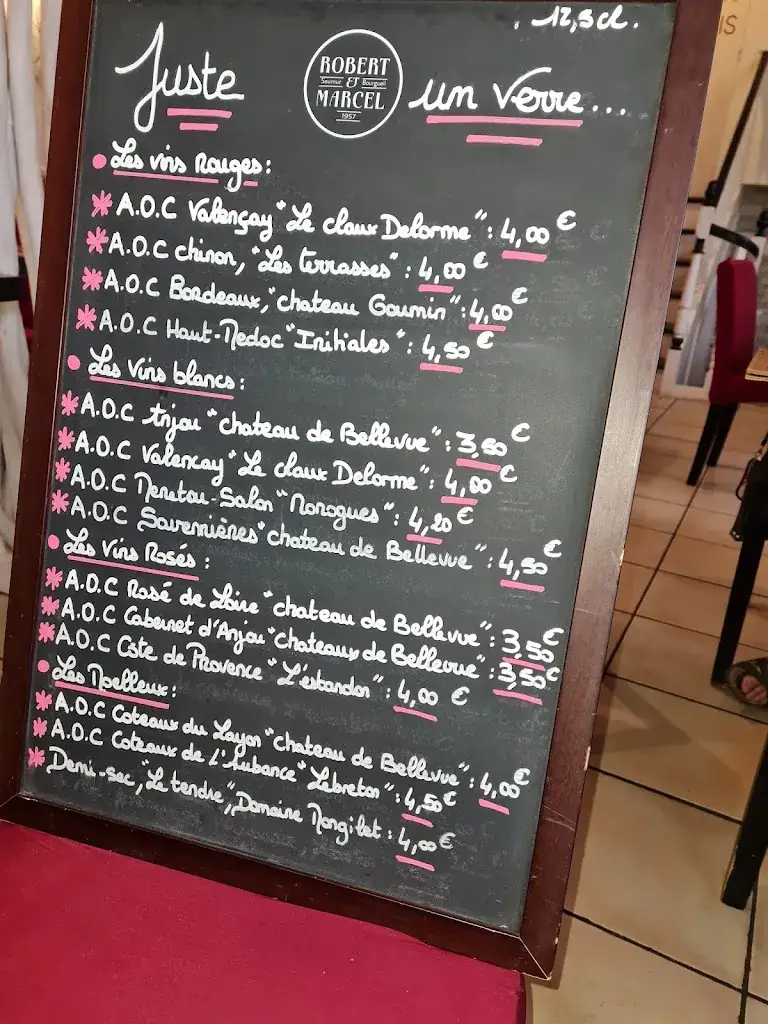 . 12,5cl.
Juste
ROBERT
&
MARCEL
Saumur Bourgueil
1957
un verre...
• Les vins Rouges :
* A.O.C Valençay "Le claux Delorme" : 4,00 €
* A.O.C chinon, "Les terrasses" : 4,00 €
* A.O.C Bordeaux, "chateau Goumin" : 4,00 €
* A.O.C Haut-Medoc "Initiales" : 4,50 €
• Les Vins blancs :
* A.O.C Anjou "chateau de Bellevue" : 3,50 €
* A.O.C Valencay "Le claux Delorme" : 4,00 €
* A.O.C Menetou-Salon "Morogues" : 4,20 €
* A.O.C Savennières "chateau de Bellevue" : 4,50 €
• Les Vins Rosés :
* A.O.C Rosé de Loire "chateau de Bellevue" : 3,50 €
* A.O.C Cabernet d'Anjou "chateaux de Bellevue" : 3,50 €
* A.O.C Côte de Provence "L'estandon" : 4,00 €
• Les Moelleux :
* A.O.C Coteaux du Layon "chateau de Bellevue" : 4,00 €
* A.O.C Coteaux de l'Aubance "Lebreton" : 4,50 €
* Demi-sec, "Le tendre", Domaine Mongilet : 4,00 €
IS